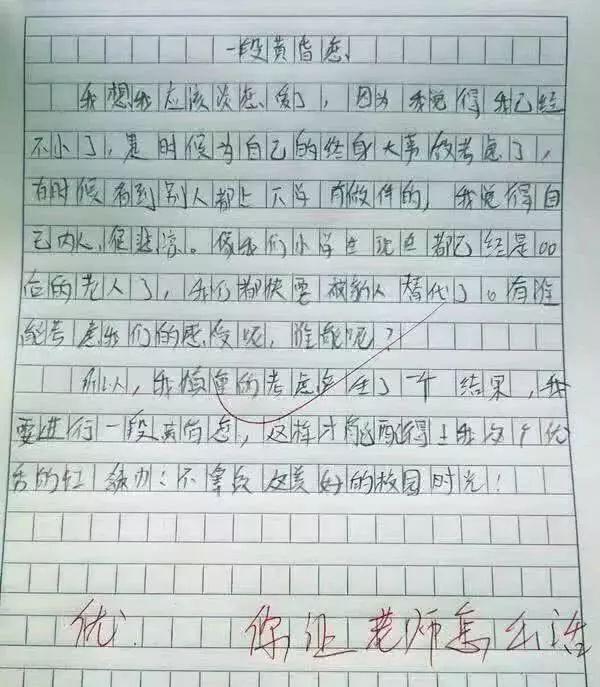 一段黄昏恋
我想我应该谈恋爱了，因为我觉得我已经
不小了，是时候为自己的终身大事做考虑了，
有时候看到别人都上下学有做伴的，我觉得自
己内人很悲凉。像我们小学生现在都已经是00
后的老人了，我们都快要被新人替代了。有谁
能考虑我们的感受呢，谁能呢？
所以，我慎重的考虑产生了一个结果，我
要进行一段黄昏恋，这样才能配得上我这个优
秀的红领巾；不辜负这美好的校园时光！
优 你让老师怎么活